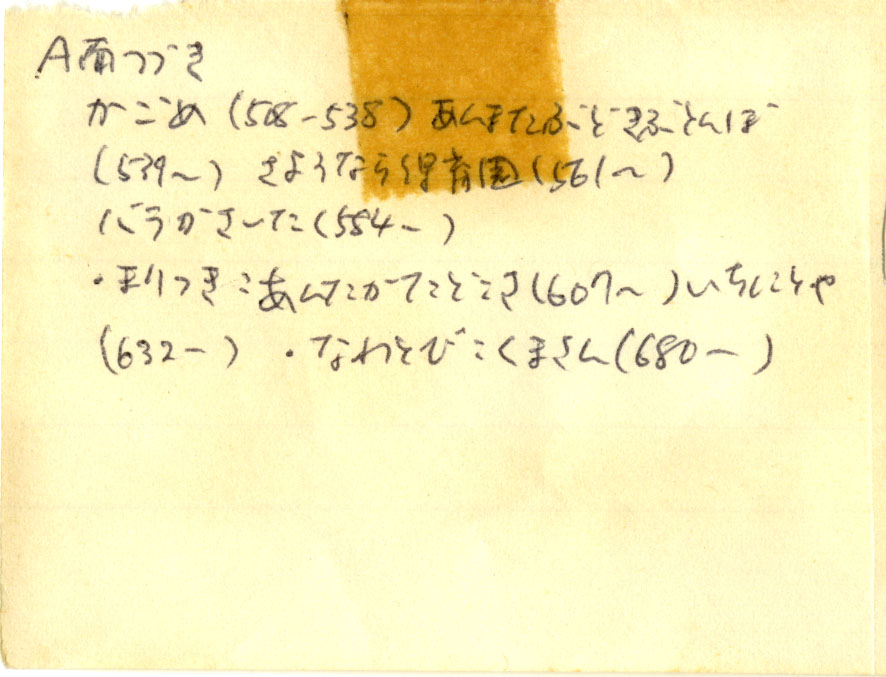 A面つづき
かごめ (508-538) あんまたぶどきぶとんぼ
(539〜) さようなら保育園 (561〜)
バラがさいた (584〜)
・まりつき:あんたがたどこさ (607〜) いちにとや
(632〜) ・なわとび:くまさん (680〜)